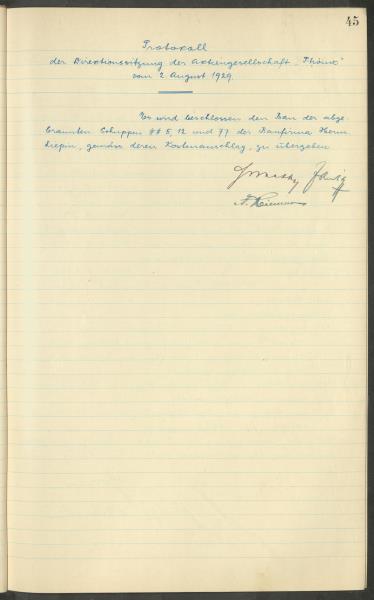 45
Protokoll
der Direktionssitzung der Aktiengesellschaft „Phönix"
vom 2 August 1929.
Es wird beschlossen den Bau der abge-
brannten Schuppen ## 5, 12 und 77 der Baufirma Herm.
, gemäss deren Kostenanschlag, zu übergeben